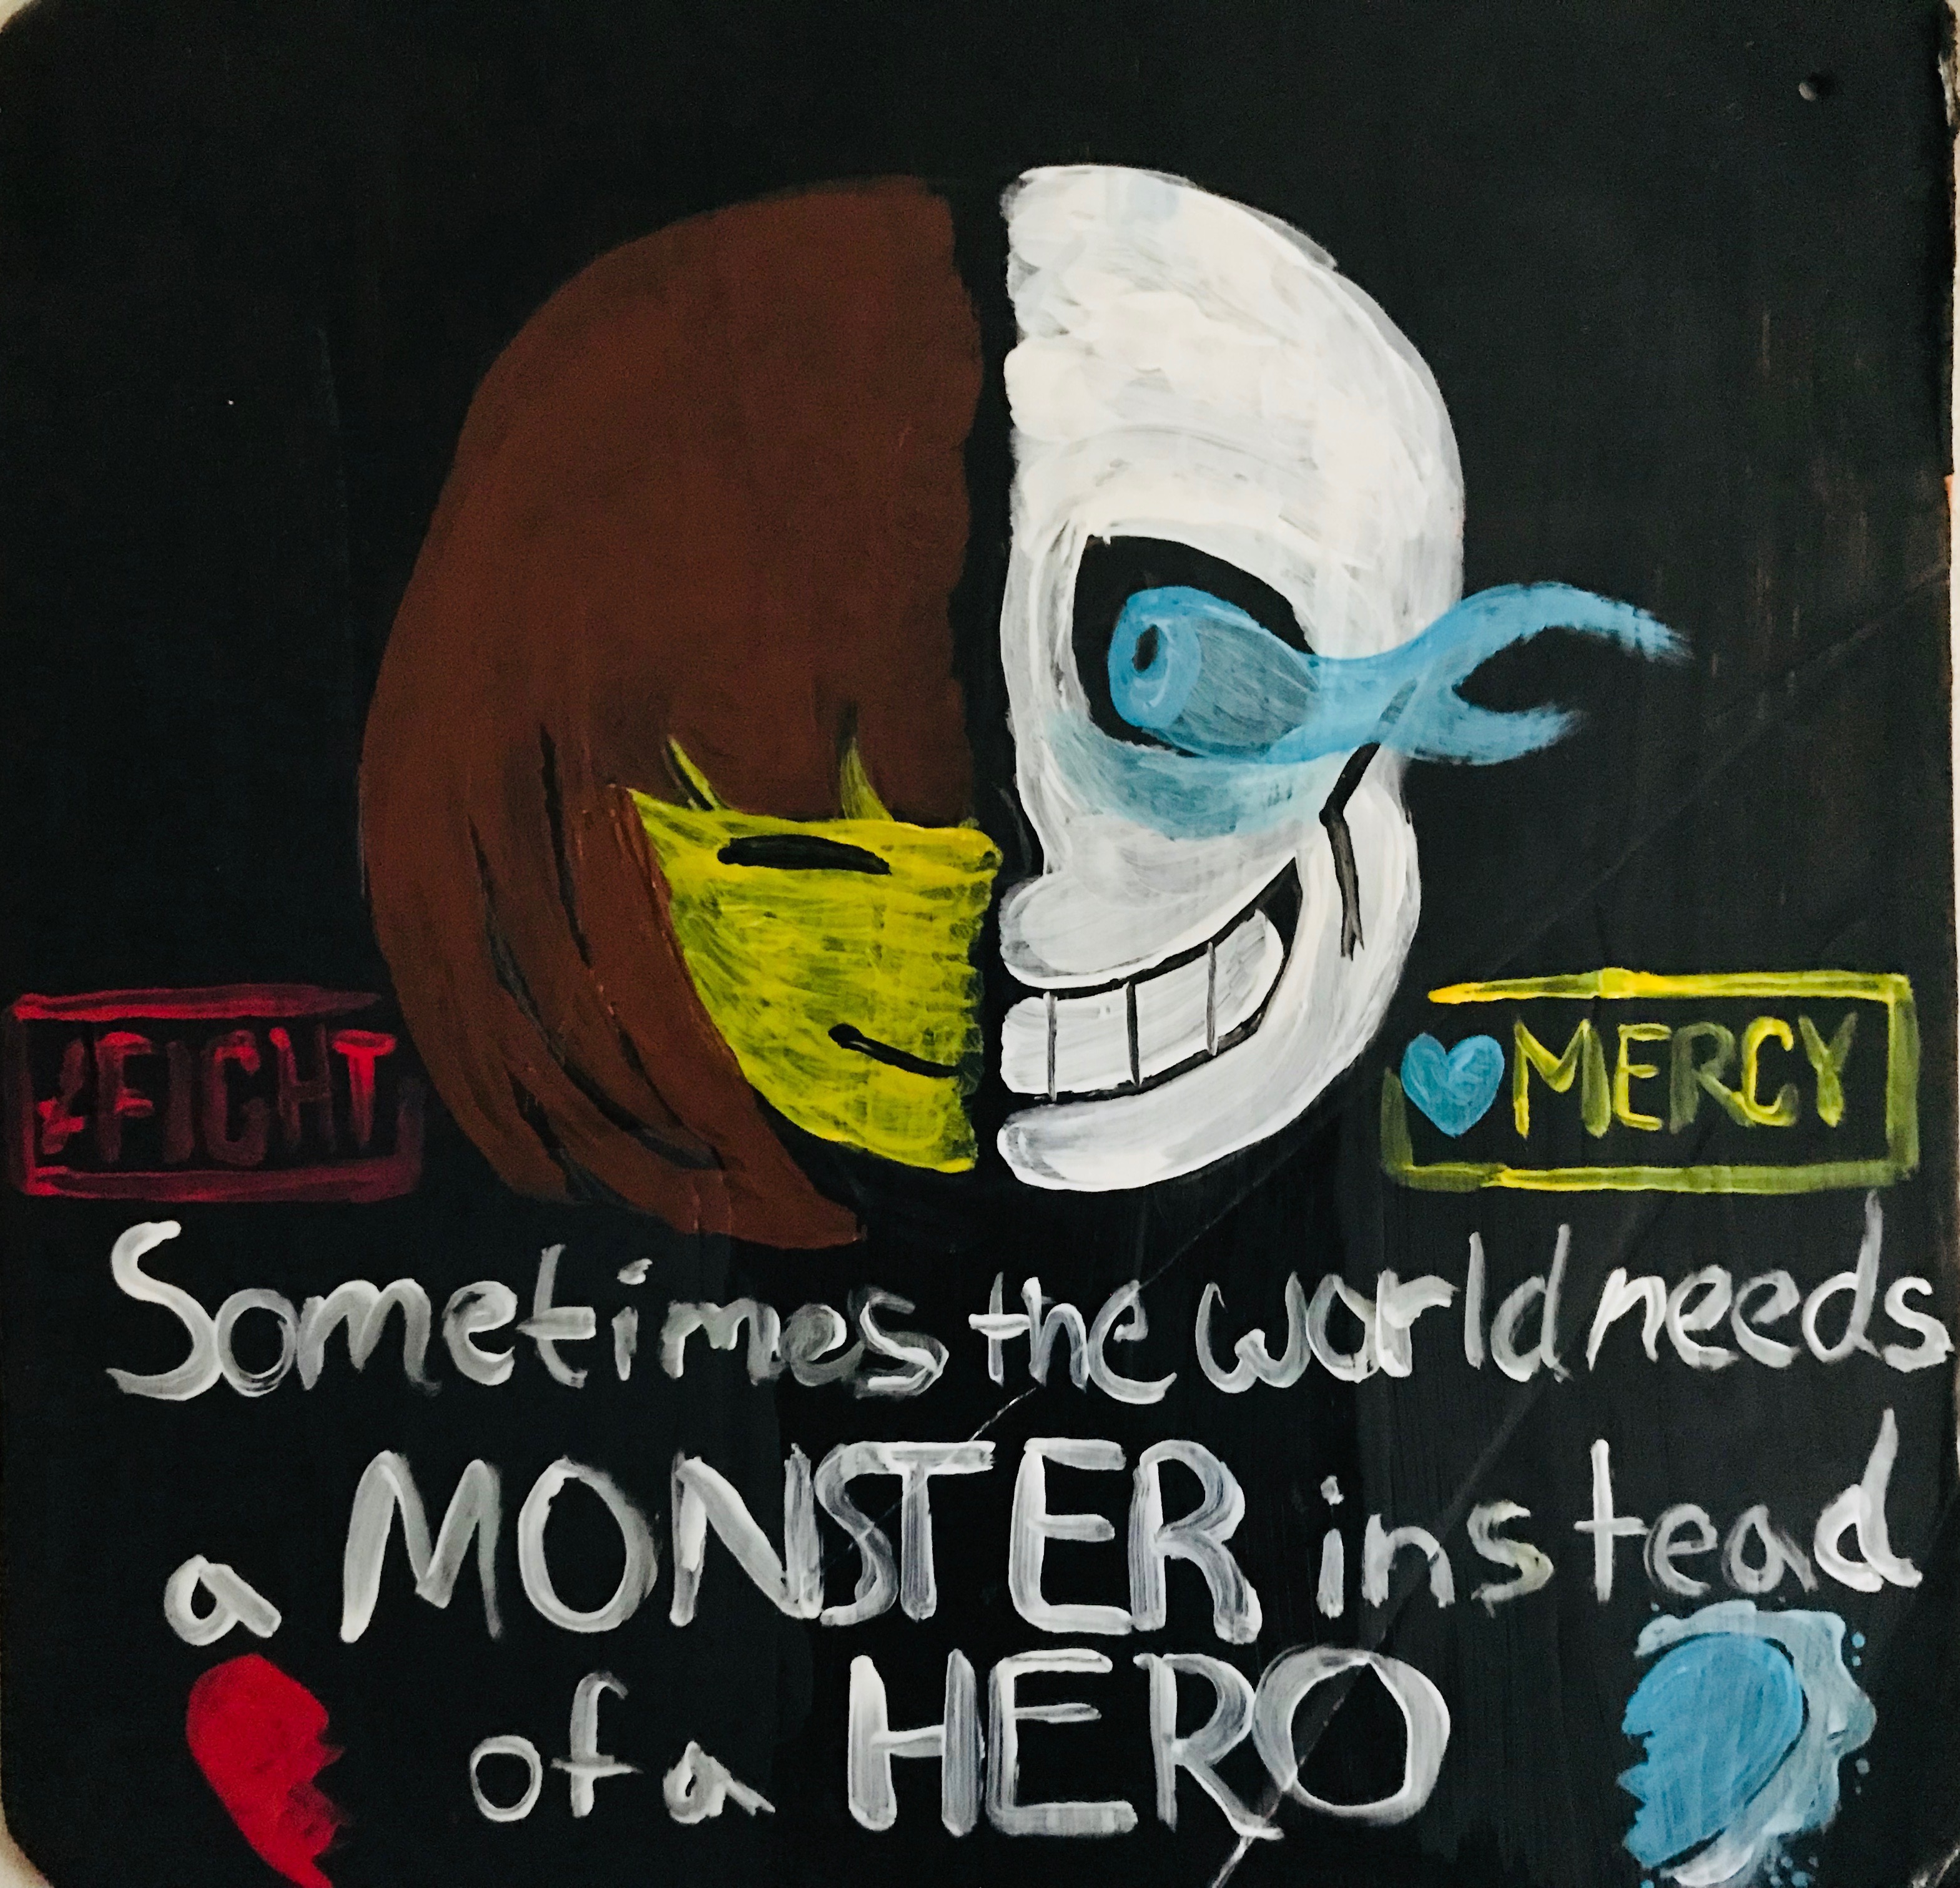 FIGHT
MERCY
Sometimes the world needs
a MONSTER instead
of a HERO